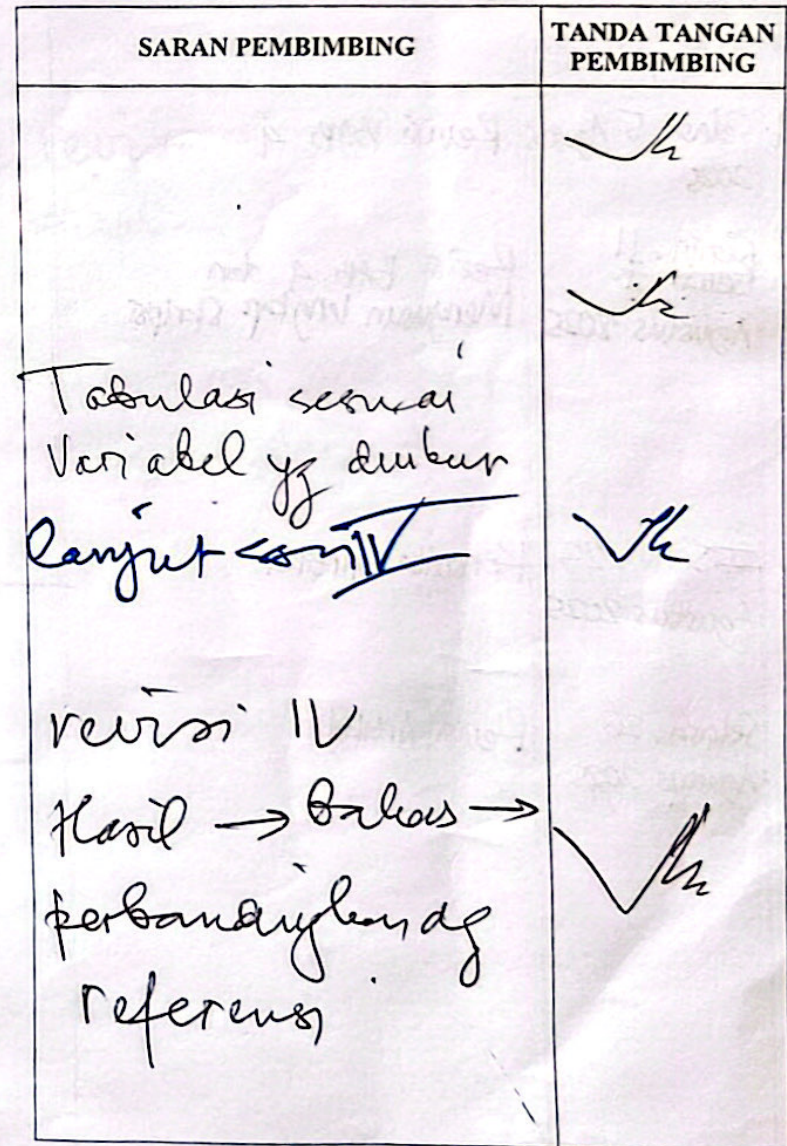 SARAN PEMBIMBING
TANDA TANGAN
PEMBIMBING
Tabulasi sesuai
Variabel yg diukur
lanjut IV
revisi IV
Hasil → bahas →
perbandingkan dg
referensi